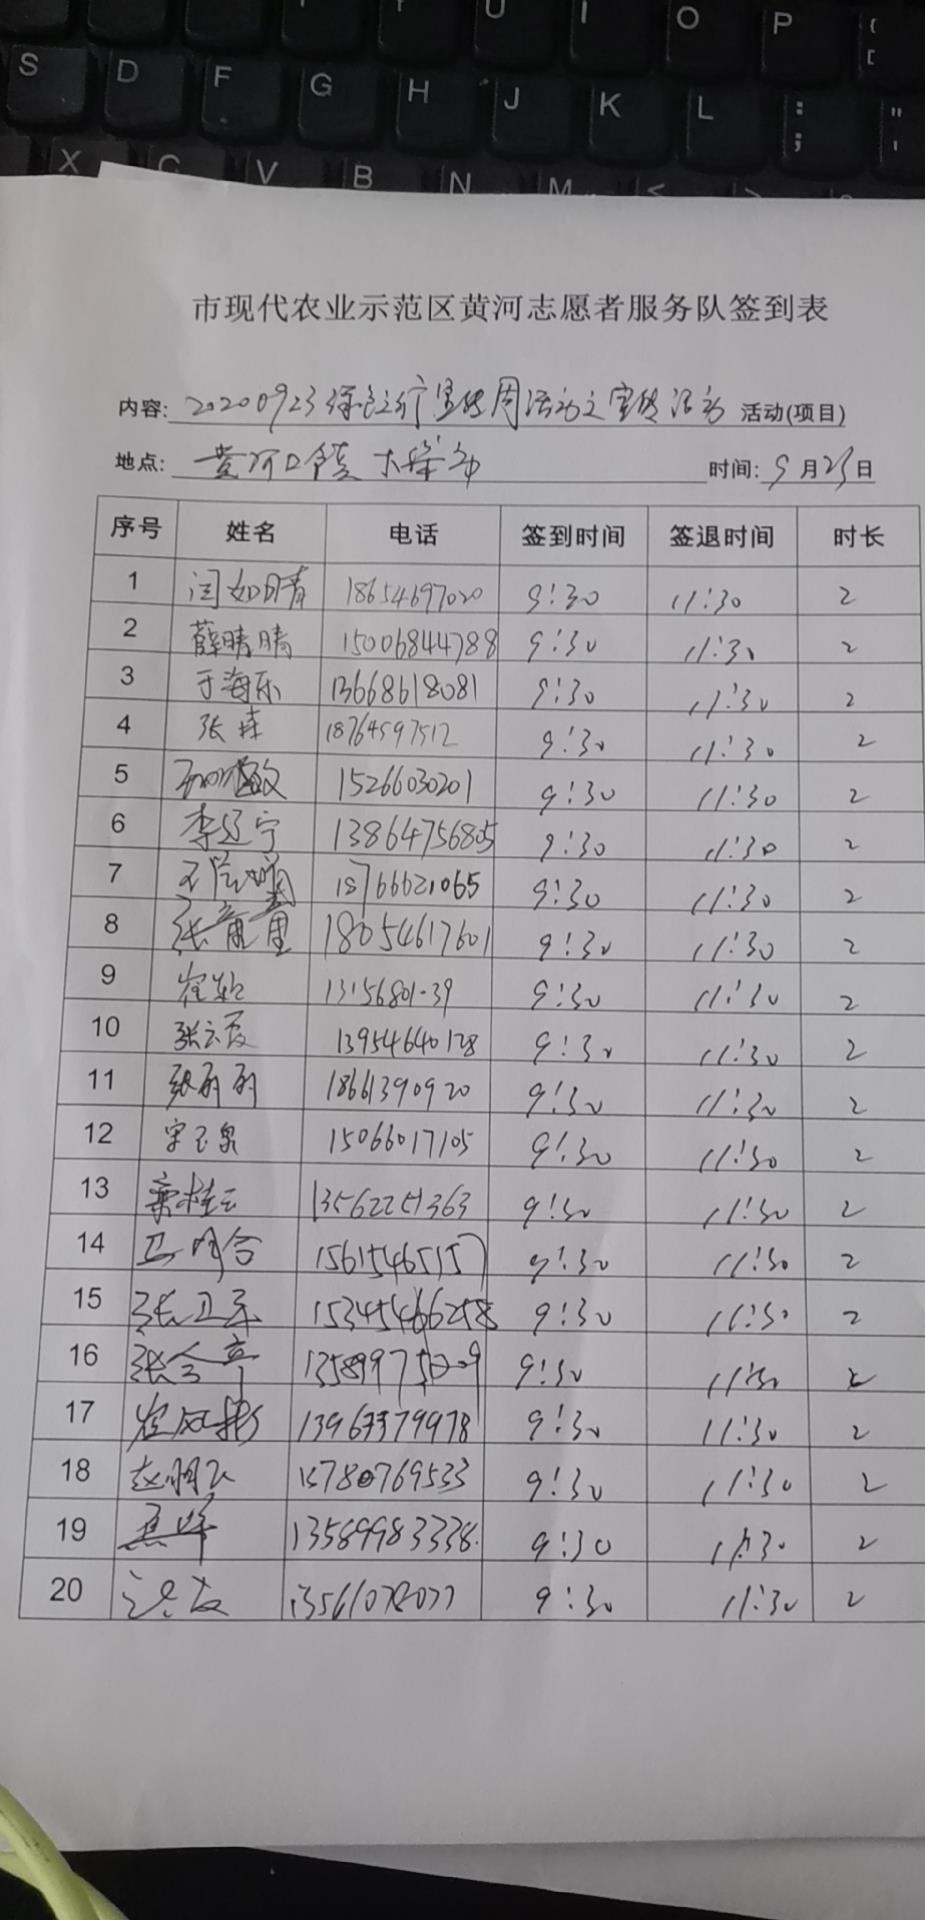 S D F G H J K L : ; " '
U I O P
X C V B N M < >
市现代农业示范区黄河志愿者服务队签到表
内容: 20200923绿色出行宣传周活动之宣传活动 活动(项目)
地点: 黄河口镇 时间: 9月23日
序号 姓名 电话 签到时间 签退时间 时长
1 闫如晴 18654697020 9:30 11:30 2
2 薛晴晴 15006844788 9:30 11:30 2
3 于海乐 13668618081 9:30 11:30 2
4 张 18764597512 9:30 11:30 2
5 15266030201 9:30 11:30 2
6 李辽宁 13864756805 9:30 11:30 2
7 18766621065 9:30 11:30 2
8 张 18054617601 9:30 11:30 2
9 崔 9:30 11:30 2
10 张云霞 13954640128 9:30 11:30 2
11 张丽丽 9:30 11:30 2
12 宋玉泉 15066017105 9:30 11:30 2
13 桂云 13562251363 9:30 11:30 2
14 15615465157 9:30 11:30 2
15 张卫东 15345466258 9:30 11:30 2
16 张 9:30 11:30 2
17 崔凤彬 9:30 11:30 2
18 赵明 15780769533 9:30 11:30 2
19 焦峰 13589983338 9:30 11:30 2
20 13561078077 9:30 11:30 2